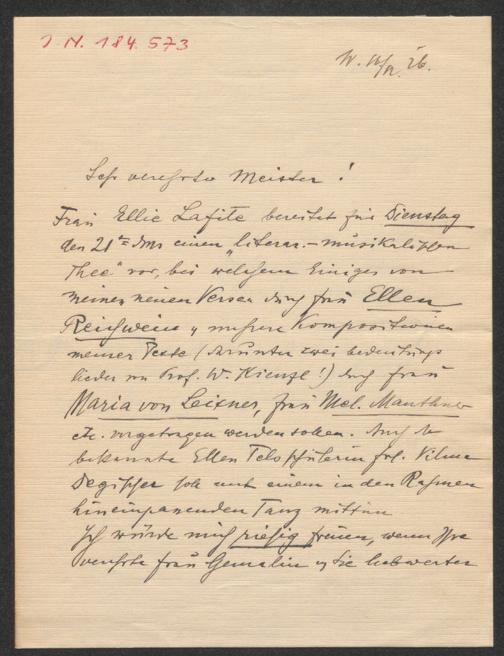 J.N. 184.573
W. 16/XI. 26.
Sehr verehrter Meister!
Frau Ellie Lafite bereitet für Dienstag
den 21ten dms einen „literar.-musikalischen
Thee" vor, bei welchem Einiges von
meinen neuen Versen durch Frau Ellen
Reichwein u mehrere Kompositionen
meiner Texte (darunter zwei
lieder von Prof. W. Kienzl!) durch Frau
Maria von Leixner, Frau Mel. Mauthner
etc. vorgetragen werden sollen. Auch die
bekannte Ellen Tels schülerin Frl. Vilma
Degischer soll mit einem in den Rahmen
hineinpassenden Tanz mittun
Ich würde mich riesig freuen, wenn Ihre
verehrte Frau Gemalin u Sie liebwerter